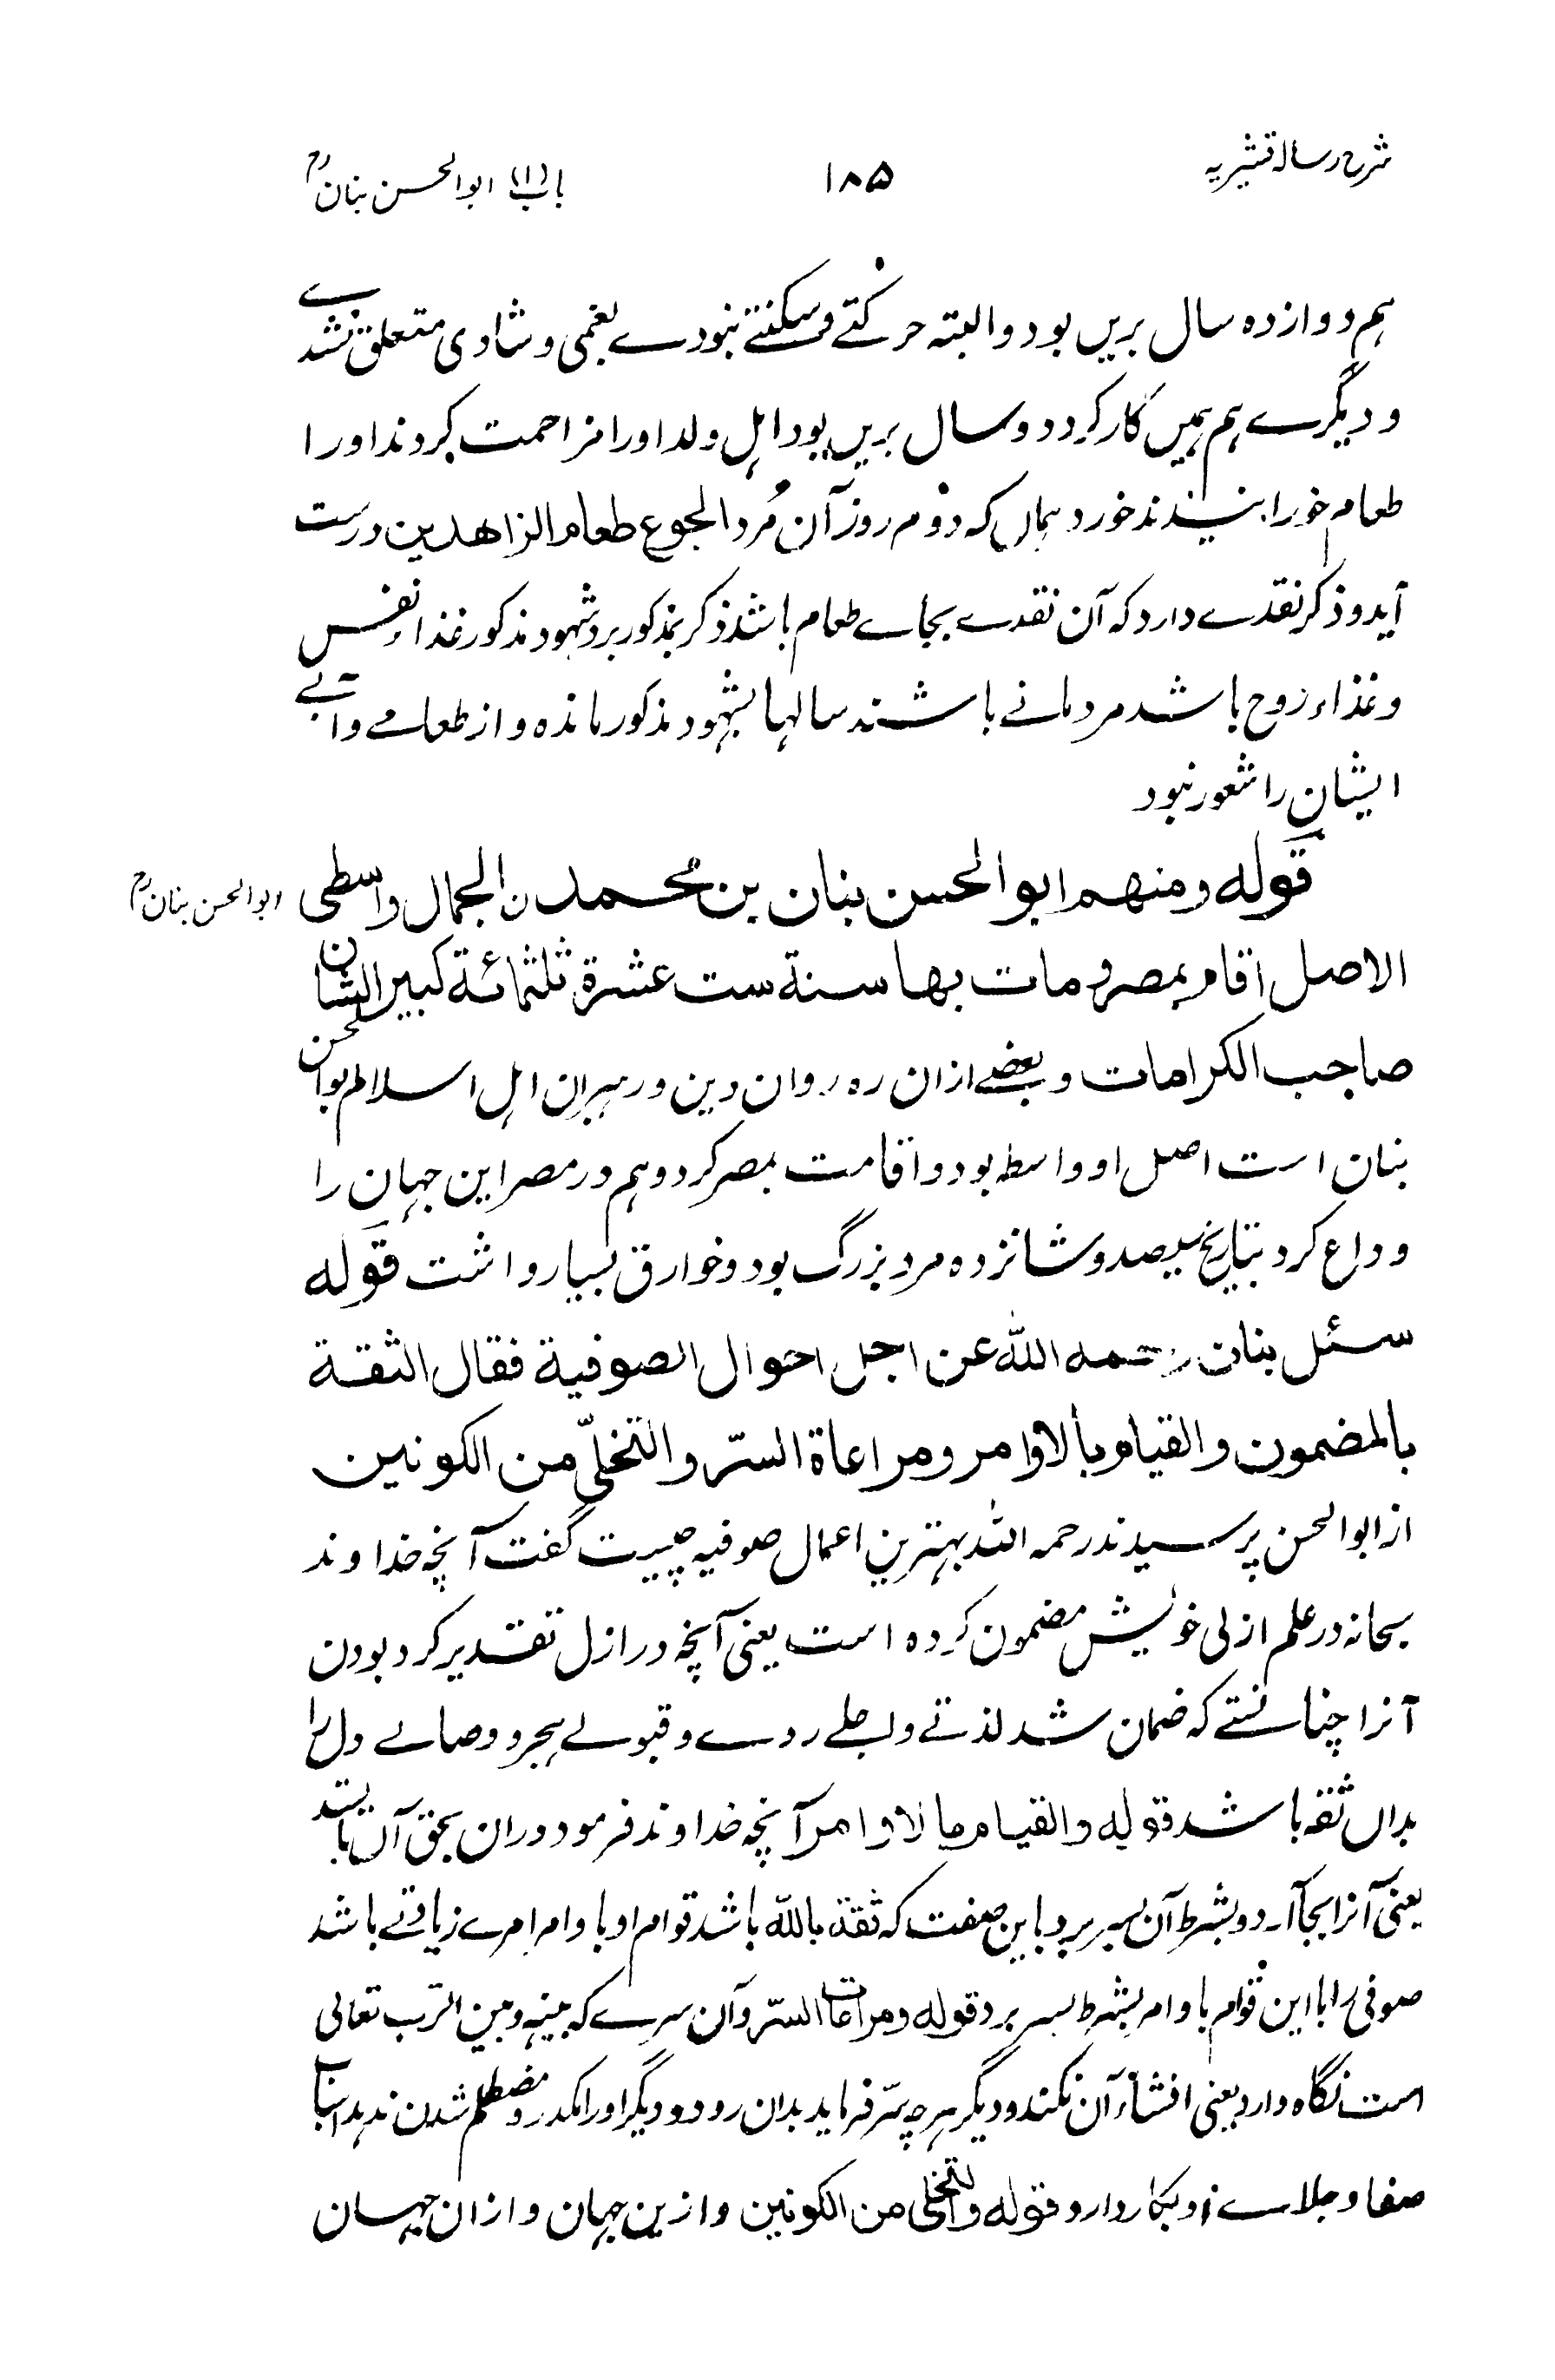 شرح رسالہ قشیریہ
۱۸۵
باب (۱) ابو الحسن بنان رح
ہم دوازدہ سال بریں بود والبتہ حرکتے و سکنتے نبودے بغمی و شادی متعلق نشدے
و دیگرے ہم ہمیں کار کرد دو سال بریں بود اہل و لد اورا مزاحمت کردند اورا
طعام خورا نیدند خورد ہماں کہ دوم روز آن مُرد الجوع طعام الزاهدين درست
آید و ذکر نقدے دارد کہ آن نقدے بجاے طعام باشد ذکر بمذکور برد شہود مذکور غذاء نفس
و غذاء روح باشد مردمانے باشند سالہا بشہود مذکور ماندہ و از طعامے و آبے
ایشان را شعور نبود
قوله ومنهم ابو الحسن بنان بن محمدن الجمال واسطی
ابو الحسن بنان رح
الاصل اقام بمصر و مات بها سنة ست عشرة ثلثمائة كبير الشان
صاحب الكرامات و بعضے ازان رہ روان دین و رہبران اہل اسلام ابو الحسن
بنان است اصل او واسط بود و اقامت بمصر کرد و ہم در مصر این جہان را
وداع کرد بتاریخ سیصد و شانزدہ مرد بزرگ بود و خوارق بسیار داشت قوله
سئل بنان رحمه الله عن اجل احوال الصوفية فقال الثقة
بالمضمون والقيام بالاوامر ومراعاة السرّ والتخلّي من الكونين
از ابو الحسن پرسیدند رحمہ اللہ بہترین اعمال صوفیہ چیست گفت آنچہ خداوند
سبحانہ در علم ازلی خویش مضمون کردہ است یعنی آنچہ در ازل تقدیر کرد بودن
آنرا چنانستے کہ ضمان شد لذتے و ردے و قبولے ہجر و وصالے دل را
بداں ثقہ باشد قوله والقيام بالاوامر آنچہ خداوند فرمود دران بحق آں باستد
یعنی آنرا بجا آرد و بشرط آن بسر برد باین صفت کہ ثقة بالله باشد قوام او باوامر امرے زیادتے باشد
صوفی را با این قوام باوامر بشرط بسر برد قوله ومراعات السرّ و آن سرے کہ بینہ و بین الرب تعالی
است نگاہ دارد یعنی افشاء آن نکند و دیگر ہرچہ سرّ فرماید بدان رود و دیگر اورا مکدر و مضطلم شدن ندہد اسباب
صفا و جلاے او بکار دارد قوله والتخلی من الکونین و ازین جہان و ازان جہان